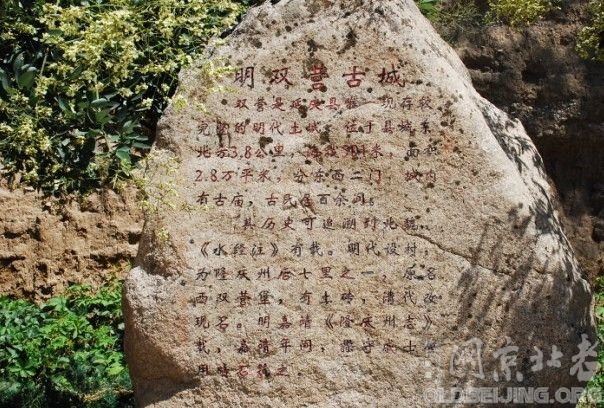 明双营古城
双营是延庆县唯一现存较
完整的明代土城，位于县城东
北方3.8公里，米，面积
2.8万平米，分东西二门，城内
有古庙，古民居百余间。
其历史可追溯到北魏，
《水经注》有载。明代设村，
为隆庆州后七里之一，原名
西双营堡，有土砖，清代改
现名。明嘉靖《隆庆州志》
载，嘉靖年间，土
用石之。
老北京网
OLDBEIJING.ORG